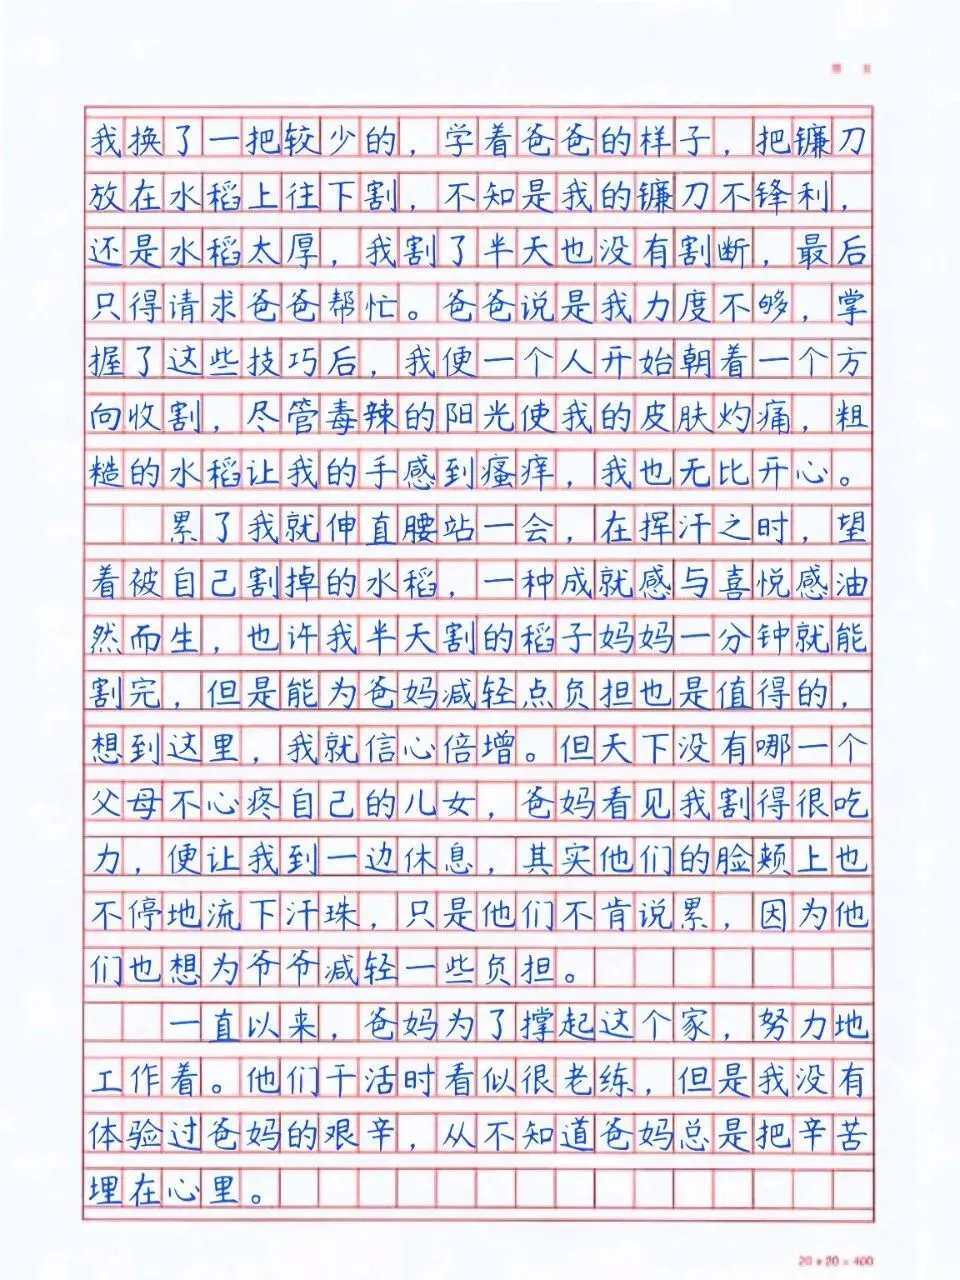 我换了一把较少的，学着爸爸的样子，把镰刀
放在水稻上往下割，不知是我的镰刀不锋利，
还是水稻太厚，我割了半天也没有割断，最后
只得请求爸爸帮忙。爸爸说是我力度不够，掌
握了这些技巧后，我便一个人开始朝着一个方
向收割，尽管毒辣的阳光使我的皮肤灼痛，粗
糙的水稻让我的手感到瘙痒，我也无比开心。
累了我就伸直腰站一会，在挥汗之时，望
着被自己割掉的水稻，一种成就感与喜悦感油
然而生，也许我半天割的稻子妈妈一分钟就能
割完，但是能为爸妈减轻点负担也是值得的，
想到这里，我就信心倍增。但天下没有哪一个
父母不心疼自己的儿女，爸妈看见我割得很吃
力，便让我到一边休息，其实他们的脸颊上也
不停地流下汗珠，只是他们不肯说累，因为他
们也想为爷爷减轻一些负担。
一直以来，爸妈为了撑起这个家，努力地
工作着。他们干活时看似很老练，但是我没有
体验过爸妈的艰辛，从不知道爸妈总是把辛苦
埋在心里。
20×20=400